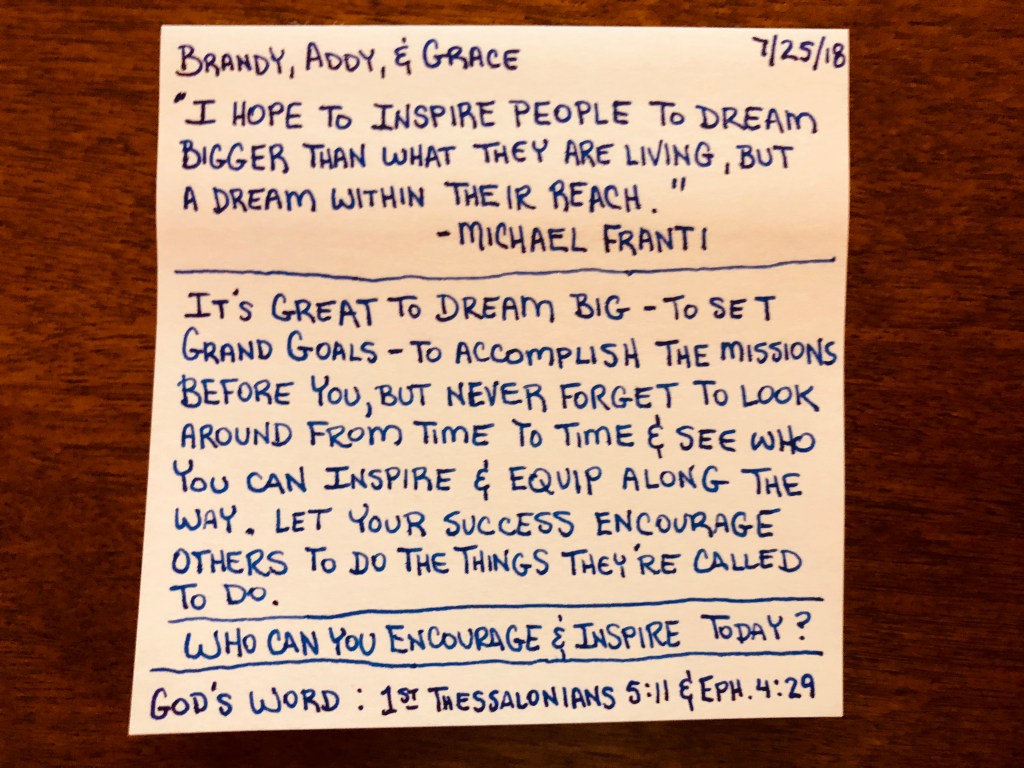 BRANDY, ADDY, & GRACE 7/25/18
"I HOPE TO INSPIRE PEOPLE TO DREAM
BIGGER THAN WHAT THEY ARE LIVING, BUT
A DREAM WITHIN THEIR REACH."
-MICHAEL FRANTI
IT'S GREAT TO DREAM BIG - TO SET
GRAND GOALS - TO ACCOMPLISH THE MISSIONS
BEFORE YOU, BUT NEVER FORGET TO LOOK
AROUND FROM TIME TO TIME & SEE WHO
YOU CAN INSPIRE & EQUIP ALONG THE
WAY. LET YOUR SUCCESS ENCOURAGE
OTHERS TO DO THE THINGS THEY'RE CALLED
TO DO.
WHO CAN YOU ENCOURAGE & INSPIRE TODAY?
GOD'S WORD : 1ST THESSALONIANS 5:11 & EPH. 4:29